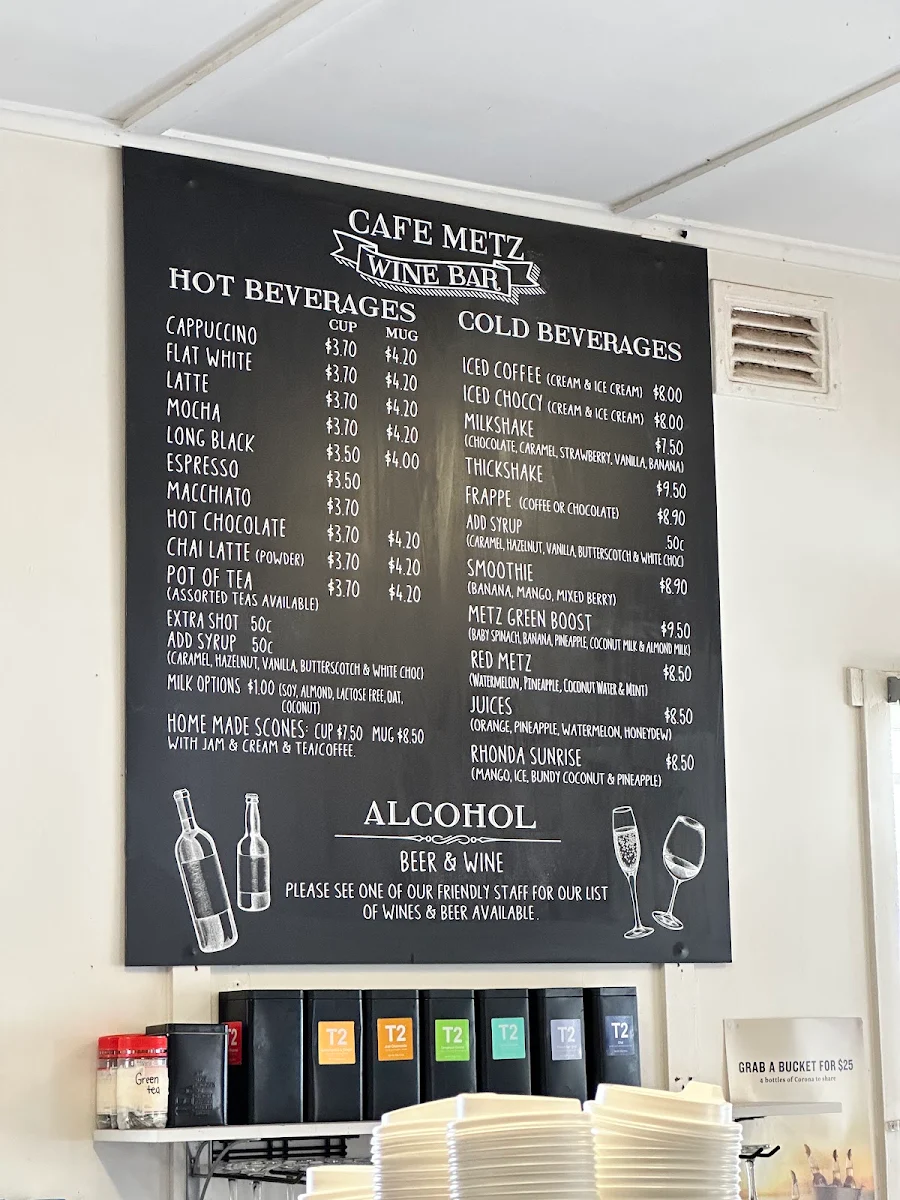 CAFE METZ
WINE BAR
HOT BEVERAGES
CUP MUG
CAPPUCCINO $3.70 $4.20
FLAT WHITE $3.70 $4.20
LATTE $3.70 $4.20
MOCHA $3.70 $4.20
LONG BLACK $3.50 $4.00
ESPRESSO $3.50
MACCHIATO $3.70
HOT CHOCOLATE $3.70 $4.20
CHAI LATTE (POWDER) $3.70 $4.20
POT OF TEA $3.70 $4.20
(ASSORTED TEAS AVAILABLE)
EXTRA SHOT 50C
ADD SYRUP 50C
(CARAMEL, HAZELNUT, VANILLA, BUTTERSCOTCH & WHITE CHOC)
MILK OPTIONS $1.00 (SOY, ALMOND, LACTOSE FREE, OAT,
COCONUT)
HOME MADE SCONES: CUP $7.50 MUG $8.50
WITH JAM & CREAM & TEA/COFFEE.
COLD BEVERAGES
ICED COFFEE (CREAM & ICE CREAM) $8.00
ICED CHOCCY (CREAM & ICE CREAM) $8.00
MILKSHAKE $7.50
(CHOCOLATE, CARAMEL, STRAWBERRY, VANILLA, BANANA)
THICKSHAKE $9.50
FRAPPE (COFFEE OR CHOCOLATE) $8.90
ADD SYRUP .50C
(CARAMEL, HAZELNUT, VANILLA, BUTTERSCOTCH & WHITE CHOC)
SMOOTHIE $8.90
(BANANA, MANGO, MIXED BERRY)
METZ GREEN BOOST $9.50
(BABY SPINACH, BANANA, PINEAPPLE, COCONUT MILK & ALMOND MILK)
RED METZ $8.50
(WATERMELON, PINEAPPLE, COCONUT WATER & MINT)
JUICES $8.50
(ORANGE, PINEAPPLE, WATERMELON, HONEYDEW)
RHONDA SUNRISE $8.50
(MANGO, ICE, BUNDY COCONUT & PINEAPPLE)
ALCOHOL
BEER & WINE
PLEASE SEE ONE OF OUR FRIENDLY STAFF FOR OUR LIST
OF WINES & BEER AVAILABLE.
T2 T2 T2 T2 T2 T2
Green
tea
GRAB A BUCKET FOR $25
4 bottles of Corona to share